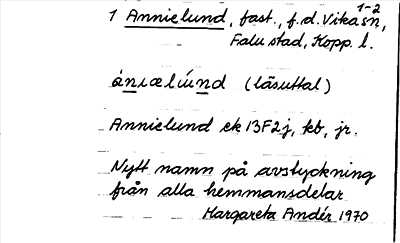 1-2
1 Annielund, fast., f.d. Vika sn,
Falu stad, Kopp. l.
ániæĺund (läsuttal)
Annielund ek 13F2j, kb, jr.
Nytt namn på avstyckning
från alla hemmansdelar
Margareta Andér 1970